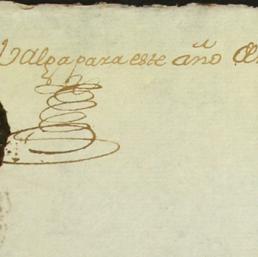 Valga para este año de